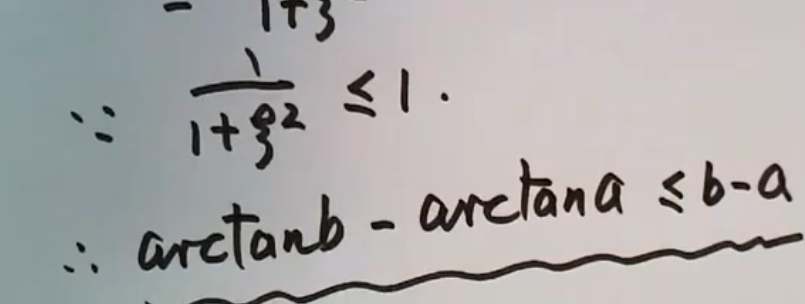 - 1+ξ
∵ 1/(1+ξ²) ≤ 1.
∴ arctanb - arctana ≤ b-a